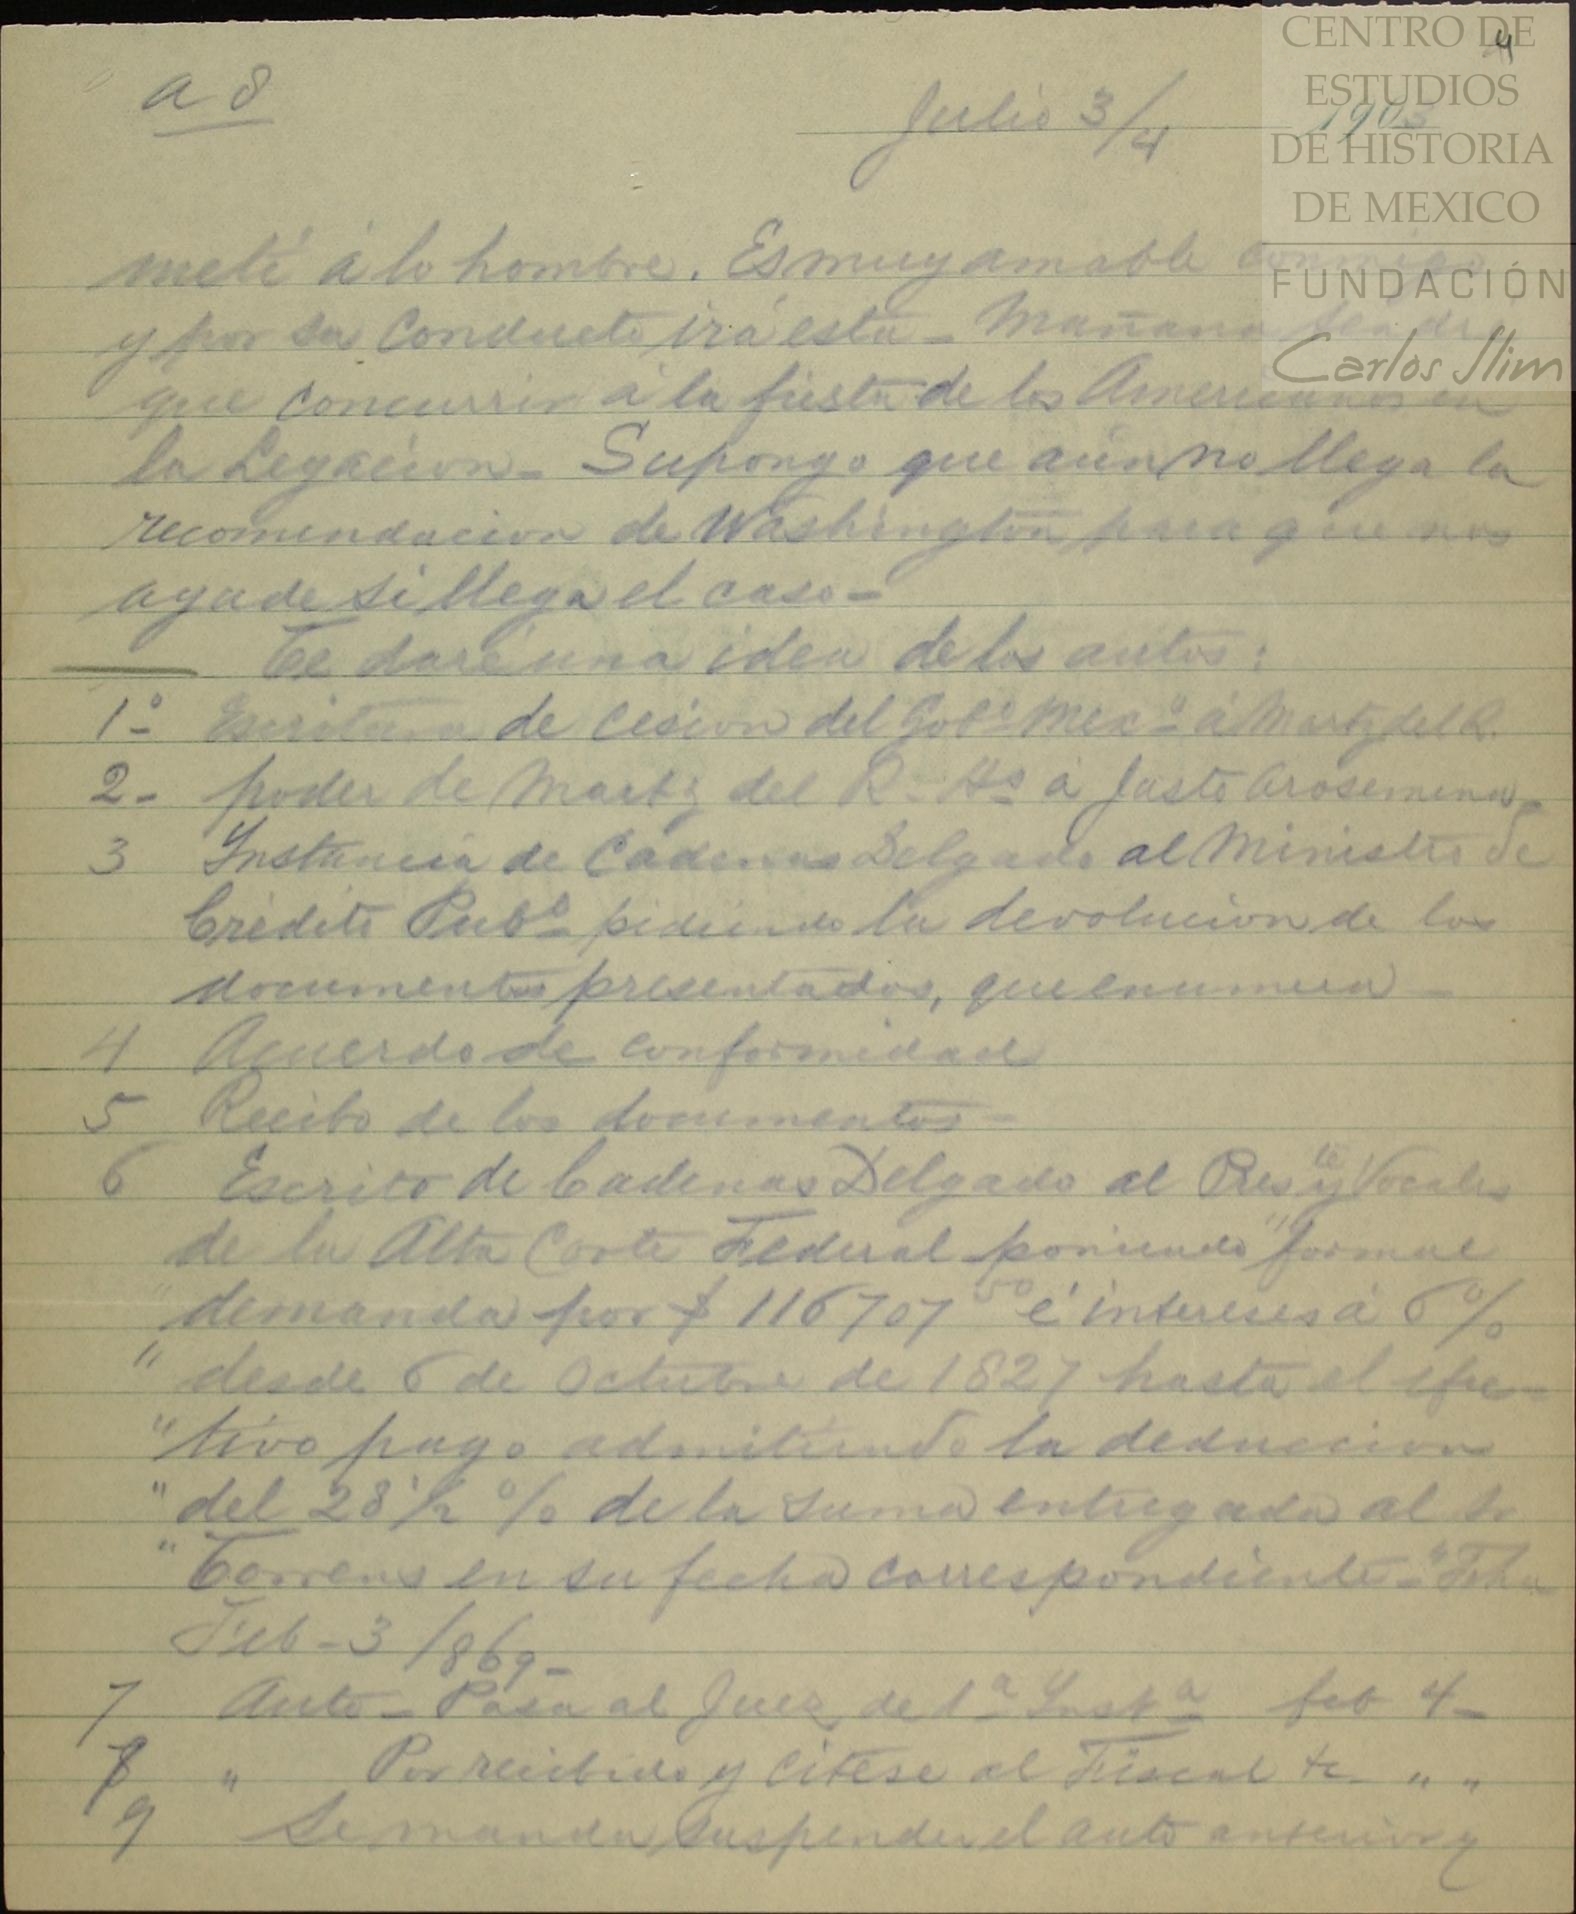 CENTRO DE
ESTUDIOS
DE HISTORIA
DE MEXICO
FUNDACIÓN
Carlos Slim
4
a 8
Julio 3/4 1903
metí á lo hombre. Es muy amable conmigo
y por su conducto irá esta_ Mañana tendré
que concurrir á la fiesta de los Americanos en
la Legacion_ Supongo que aún no llega la
recomendacion de Washington para que nos
ayude si llega el caso_
Te daré una idea de los autos:
1º_ Escritura de Cesion del Gobº Mexº á Martz del R.
2_ poder de Martz del R_ Hs á Justo Arosemena_
3 Instancia de Cadenas Delgado al Ministro de
Crédito Pubº pidiendo la devolucion de los
documentos presentados, que enumera_
4 Acuerdo de conformidad
5 Recibo de los documentos_
6 Escrito de Cadenas Delgado al Preste y Vocales
de la Alta Corte Federal poniendo "formal
" demanda por $ 116707 50 é intereses á 6%
" desde 6 de Octubre de 1827 hasta el efec-
" tivo pago admitiendo la deduccion
" del 28 1/2 % de la suma entregada al Sr
" Torrens en su fecha correspondiente_" Fha
Feb_3/869_
7 Auto_ Pasa al Juez de 1ª Instª feb 4_
8 " Por recibido y Citese al Fiscal &c_ " "
9 Se manda suspender el auto anterior y